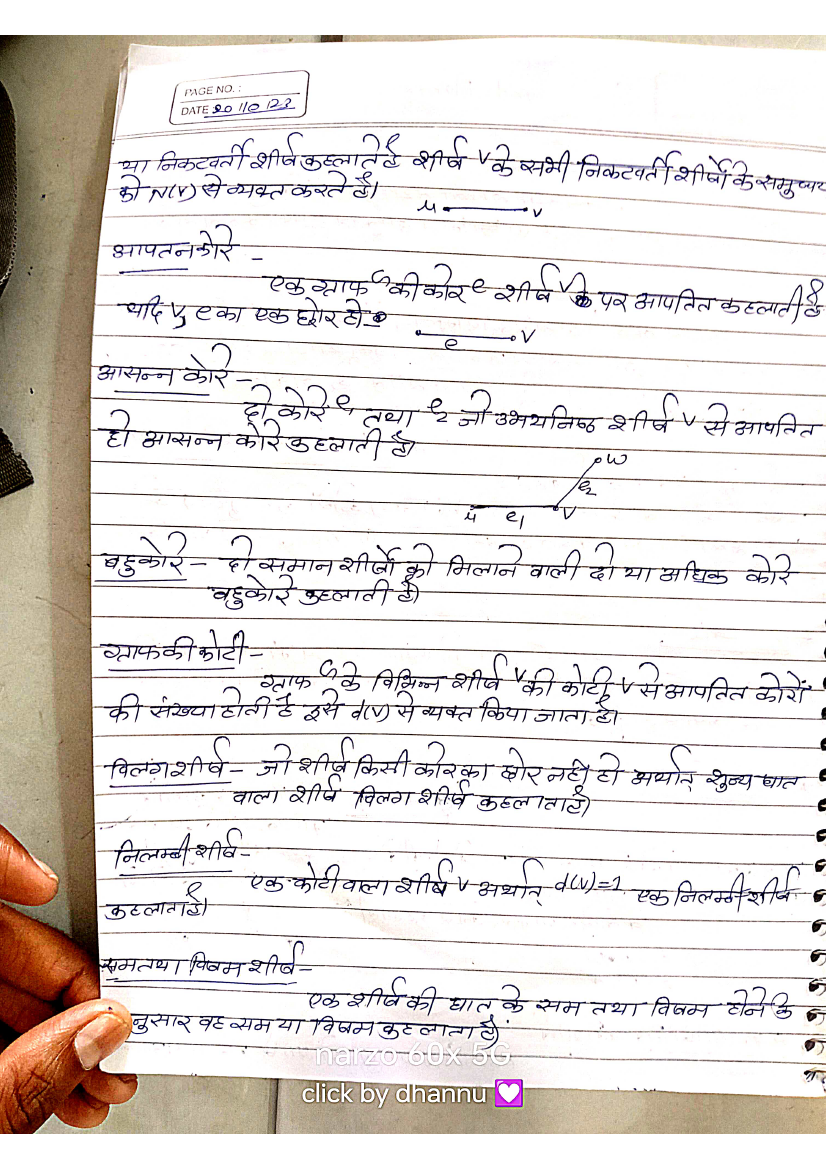 PAGE NO. :
DATE 20/10/23
या निकटवर्ती शीर्ष कहलाते है शीर्ष v के सभी निकटवर्ती शीर्षो के समुच्चय
को N(V) से व्यक्त करते है।
u v
आपतन कोरे -
एक ग्राफ G की कोर e शीर्ष V पर आपतित कहलाती है
यदि V, e का एक छोर हो
e v
आसन्न कोरे -
दो कोरे e1 तथा e2 जो उभयनिष्ठ शीर्ष v से आपतित
हो आसन्न कोरे कहलाती है।
w
e2
u e1 v
बहुकोरे - दो समान शीर्षो को मिलाने वाली दो या अधिक कोरे
बहुकोरे कहलाती है।
ग्राफ की कोटी -
ग्राफ G के विभिन्न शीर्ष v की कोटी v से आपतित कोरों
की संख्या होती है इसे d(v) से व्यक्त किया जाता है।
विलग शीर्ष - जो शीर्ष किसी कोर का छोर नही हो अर्थात् शून्य घात
वाला शीर्ष विलग शीर्ष कहलाता है।
निलम्बी शीर्ष -
एक कोटी वाला शीर्ष v अर्थात् d(v)=1 एक निलम्बी शीर्ष
कहलाता है।
सम तथा विषम शीर्ष -
एक शीर्ष की घात के सम तथा विषम होने के
नुसार वह सम या विषम कहलाता है।
narzo 60x 5G
click by dhannu 💟